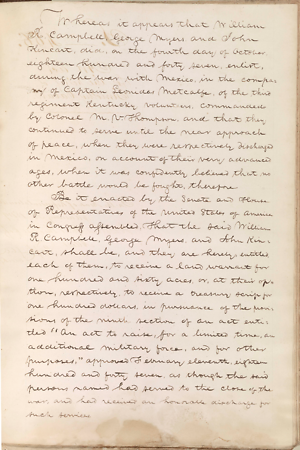 Whereas it appears that William
R. Campbell, George Myers and John
Kincart, did, on the fourth day of October
eighteen hundred and forty seven, enlist,
during the war with Mexico, in the compa-
ny of Captain Leonidas Metcalfe, of the third
regiment Kentucky volunteers, commanded
by Colonel M. V. Thompson, and that they
continued to serve until the near approach
of peace, when they were respectively discharged
in Mexico, on account of their very advanced
ages, when it was confidently believed that no
other battle would be fought, therefore
Be it enacted by the Senate and House
of Representatives of the United States of America
in Congress assembled, That the said William
R. Campbell, George Myers and John Kin-
cart, shall be, and they are hereby, entitled
each of them, to receive a land warrant for
one hundred and sixty acres, or, at their op-
tion, respectively, to receive a treasury scrip for
one hundred dollars, in pursuance of the provi-
sions of the ninth section of an act enti-
tled "An act to raise, for a limited time, an
additional military force, and for other
purposes," approved February eleventh, eighteen
hundred and forty seven, as though the said
persons named had served to the close of the
war, and had received an honorable discharge for
such services